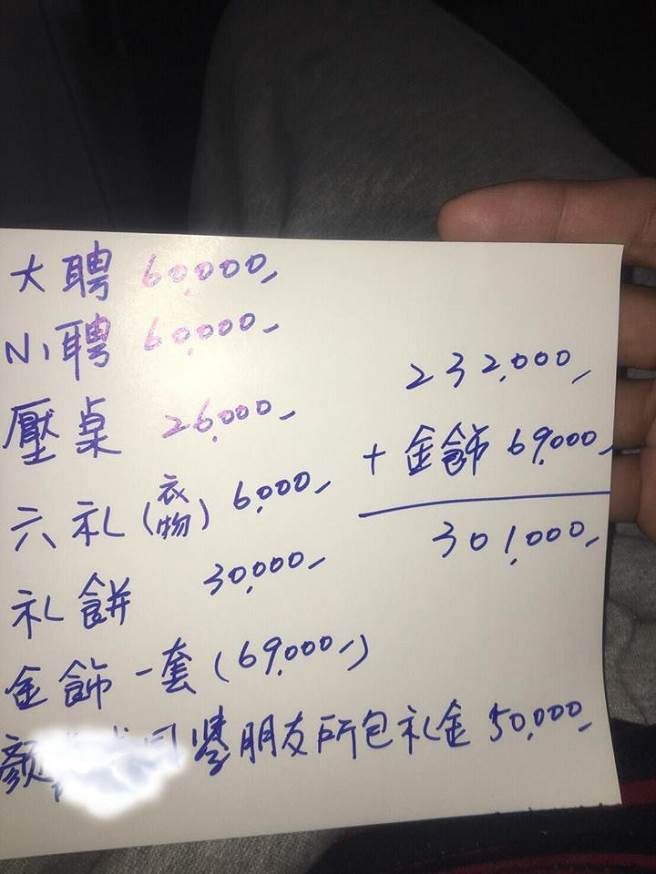 大聘 60,000,-
小聘 60,000,-
壓桌 26,000,-
六礼(衣物) 6,000,-
礼餅 30,000,-
金飾一套(69,000,-)
顏 朋友所包礼金 50,000,-
232,000,-
+ 金飾 69,000,-
301,000,-